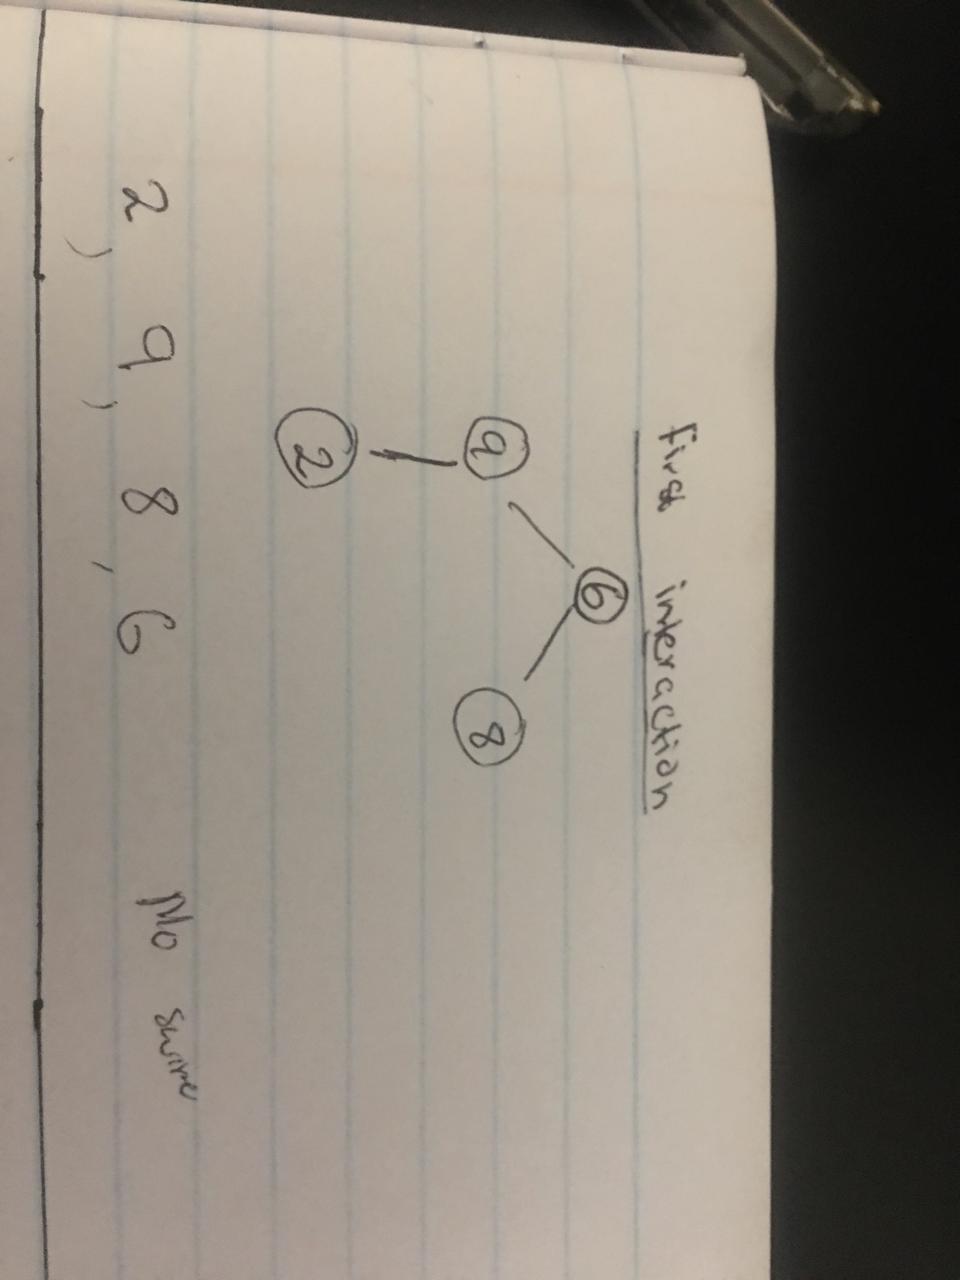 First interaction
6
9 8
2
2, 9, 8, 6 Mo